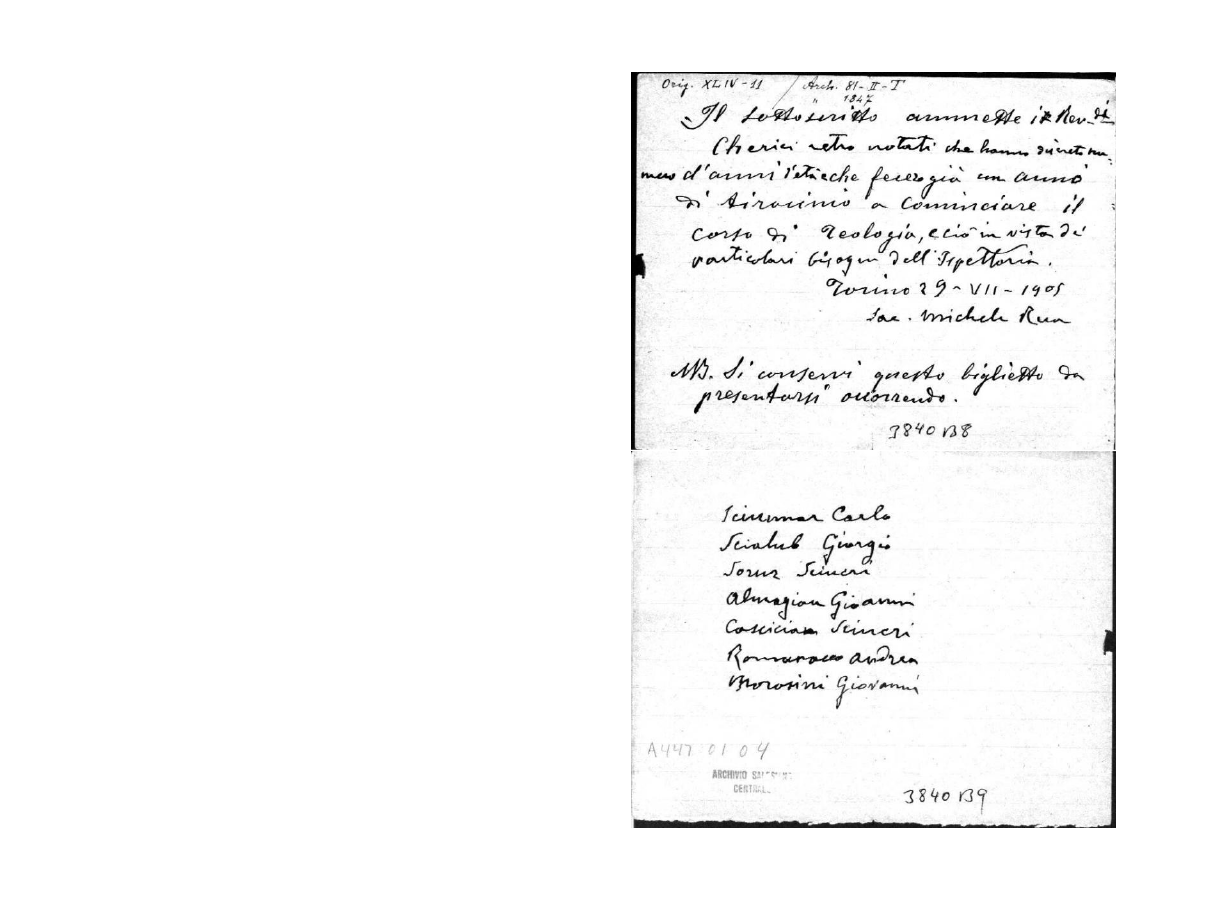 Orig. XLIV-11 / Arch. 81-II-T
1847
Il sottoscritto ammette i Rev.di
Cherici retro notati che hanno discreto nu-
mero d'anni d'età e che fecero già un anno
di tirocinio a cominciare il
corso di Teologia, e ciò in vista di
particolari bisogni dell'Ispettoria.
Torino 29-VII-1905
Sac. Michele Rua
NB. Si conservi questo biglietto da
presentarsi occorrendo.
3840 B8
Carlo
Scialub Giorgio
Sciucri
Almagian Giovanni
Sciucri
Andrea
Morosini Giovanni
A447 01 04
ARCHIVIO SALESIANO
CENTRALE
3840 B9